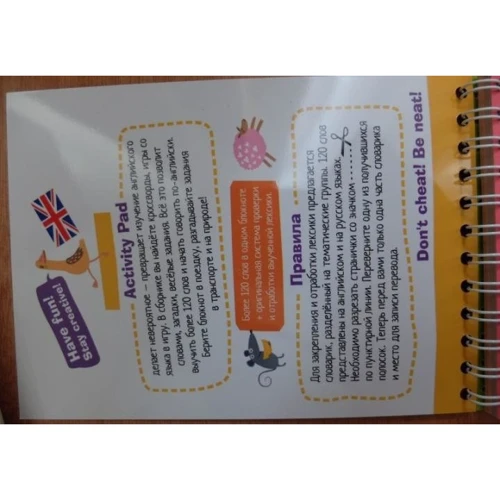 Have fun!
Stay creative!
Activity Pad
делает невероятное – превращает изучение английского
языка в игру. В сборнике вы найдёте кроссворды, игры со
словами, загадки, весёлые задания. Всё это позволит
выучить более 120 слов и начать говорить по-английски.
Берите блокнот в поездку, разгадывайте задания
в транспорте и на природе!
Более 120 слов в одном блокноте
+ оригинальная система проверки
и отработки выученной лексики.
Правила
Для закрепления и отработки лексики предлагается
словарик, разделённый на тематические группы. 120 слов
представлены на английском и на русском языках.
Необходимо разрезать странички со значком
по пунктирной линии. Переверните одну из получившихся
полосок. Теперь перед вами только одна часть словарика
и место для записи перевода.
Don't cheat! Be neat!